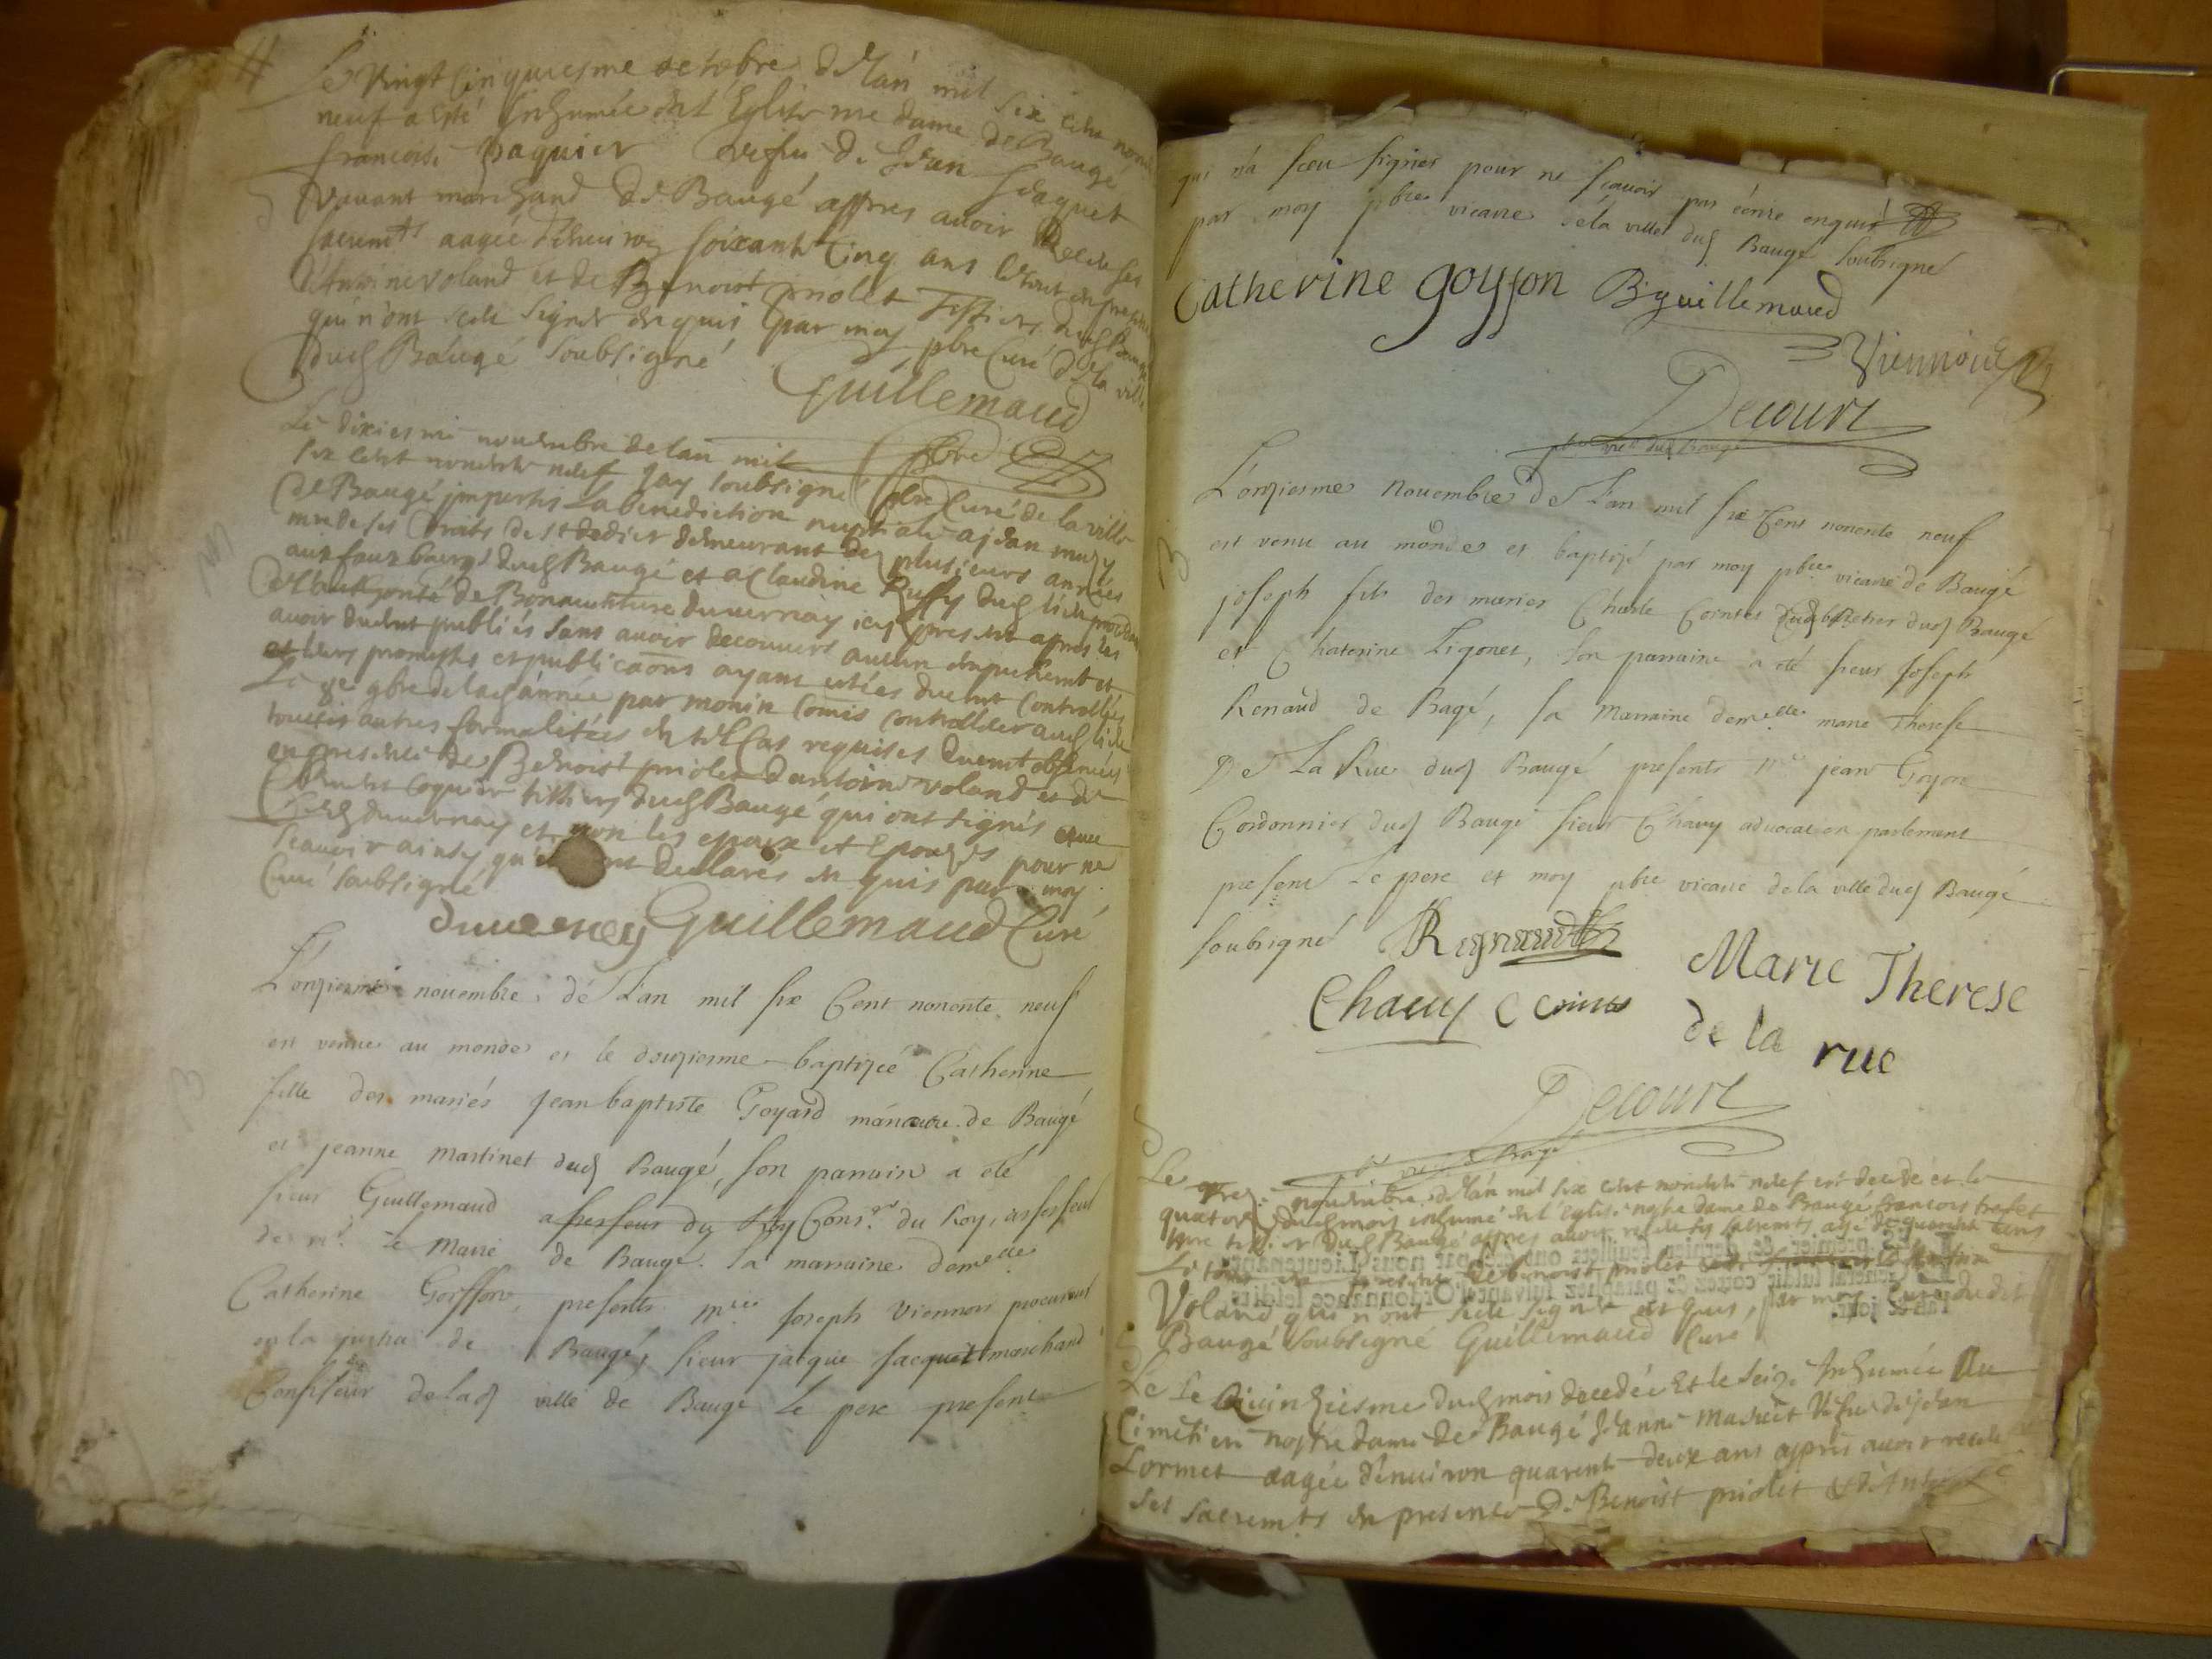 Le vingt cinquiesme octobre de l'an mil six cent nona
neuf a esté Inhumée en l'Eglise nre dame de Baugé
francoise paquier vefue de Jean Jdaquet
vivant marchand de Baugé appres avoir Receu ses
sacremts aagée d'environ soixante cinq ans le tout en presence
d'Antoine voland et de Benoist priolet Tissiers dud Baugé
qui n'ont sceu signer enquis par moy pbre Curé de la ville
dud Baugé soubsigné
Guillemaud
pbre
Le dixiesme nouembre de lan mil
six cent nonente neuf Jay soubsigné pbre Curé de la ville
de Baugé impertis la benediction nuptiale a jean
de ses droits de st dedier demeurant dez plusieurs années
aux faux bourgs dud Baugé et a Claudine Ruffy dud lieu
de Bonauenture duuernay icy present apres les
avoir duemt publiés sans avoir decouuert aucun empechemt et
leurs promesses et publicaons ayant estées duemt controllées
Le 9e 9bre de lad année par monin Comis controlleur aud lieu
touttes autres formalitées en tel cas requises duemt observées
en presence de Benoist priolet d'antoine voland et de
Coquier tissiers dud Baugé qui ont signés
duuernay et non les epoux et Epouzes pour ne
scauoir ainsy qu'ils ont declarés enquis par moy
Curé soubsigné
duuernay Guillemaud Curé
L'onziesme nouembre de L'an mil six Cent nonente neuf
est venue au monde et le douziesme baptizée Catherine
fille des mariés jean baptiste Goyard manœure de Baugé
et jeanne martinet dud Baugé, son parrain a été
sieur Guillemaud assesseur du Roy Consr du Roy, assesseur
de mr le Maire de Baugé. sa marraine demelle
Catherine Goyffon, presents mre joseph Viennois procureur
en la justice de Baugé, sieur jacque jacquet marchand
Confiseur de lad ville de Baugé le pere present
qui n'a sceu signer pour ne scauoir pas écrire enquis
par moy pbre vicaire de la ville dud Baugé soubsigné
Catherine goyffon Bguillemaud
Viennois
Decourt
pbre vicre dud Baugé
L'onziesme Nouembre de L'an mil six Cent nonente neuf
est venu au monde et baptizé par moy pbre vicaire de Baugé
joseph fils des mariés Charle Corntes dud Baugé
et Chaterine Ligonet, son parraine a été sieur Joseph
Renaud de Bagé, sa marraine demelle marie Therese
De La Rue dud Baugé presents mre jean Goyon
Cordonnier dud Baugé sieur Chavy advocat en parlement
present Le pere et moy pbre vicaire de la ville dud Baugé
soubsigné Regnaud
Marie Therese
Chauy
de la rue
Decourt
Le nouembre de l'an mil six cent nonente neuf est decedé et le
quatorze dud mois inhumé en l'Eglise nostre dame de Baugé francois
dud Baugé appres avoir receu ses sacremts agé de quarante cinq
Le tout en presence de benoist priolet
Voland qui n'ont sceu signer enquis, par moy Curé dudit
Baugé soubsigné Guillemaud Curé
Le Quinziesme dud mois decedée Et le seize Inhumée Au
Cimetiere nostre dame de Baugé Jeanne vefue de jean
Lormet aagée d'enuiron quarente deux ans appres auoir receu
ses sacremts en presence De Benoist priolet